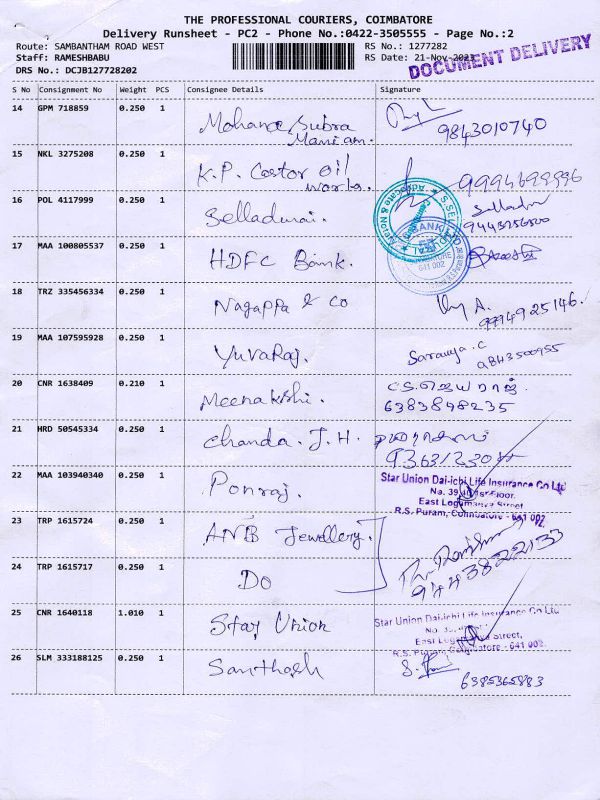 THE PROFESSIONAL COURIERS, COIMBATORE
Delivery Runsheet - PC2 - Phone No.:0422-3505555 - Page No.:2
Route: SAMBANTHAM ROAD WEST
RS No.: 1277282
Staff: RAMESHBABU
RS Date: 21-Nov-2023
DRS No.: DCJB127728202
DOCUMENT DELIVERY
S No Consignment No Weight PCS Consignee Details Signature
14 GPM 718859 0.250 1 Mohana Subra
Maniam.
9843010740
15 NKL 3275208 0.250 1 K.P. Castor oil
works.
9994699996
16 POL 4117999 0.250 1 Selladurai.
Selladurai
9443256500
17 MAA 100805537 0.250 1 HDFC Bank.
641 002
18 TRZ 335456334 0.250 1 Nagappa & Co
9994925146.
19 MAA 107595928 0.250 1 Yuvaraj.
Saranya.C
9843500955
20 CNR 1638409 0.210 1 Meenakshi.
C.S.ஜெயராஜ்.
6383898235
21 HRD 50545334 0.250 1 Chanda. J. H.
22 MAA 103940340 0.250 1 Ponraj.
Star Union Dai-ichi Life Insurance Co Ltd
No. 39, Floor.
East Street,
R.S. Puram, Coimbatore - 641 002.
23 TRP 1615724 0.250 1 ANB Jewellery.
9443822133
24 TRP 1615717 0.250 1 Do
25 CNR 1640118 1.010 1 Star Union
Star Union Dai-ichi Life Insurance Co Ltd
No.
East Street,
R.S. Puram, Coimbatore - 641 002.
26 SLM 333188125 0.250 1 Santhosh
6385365883